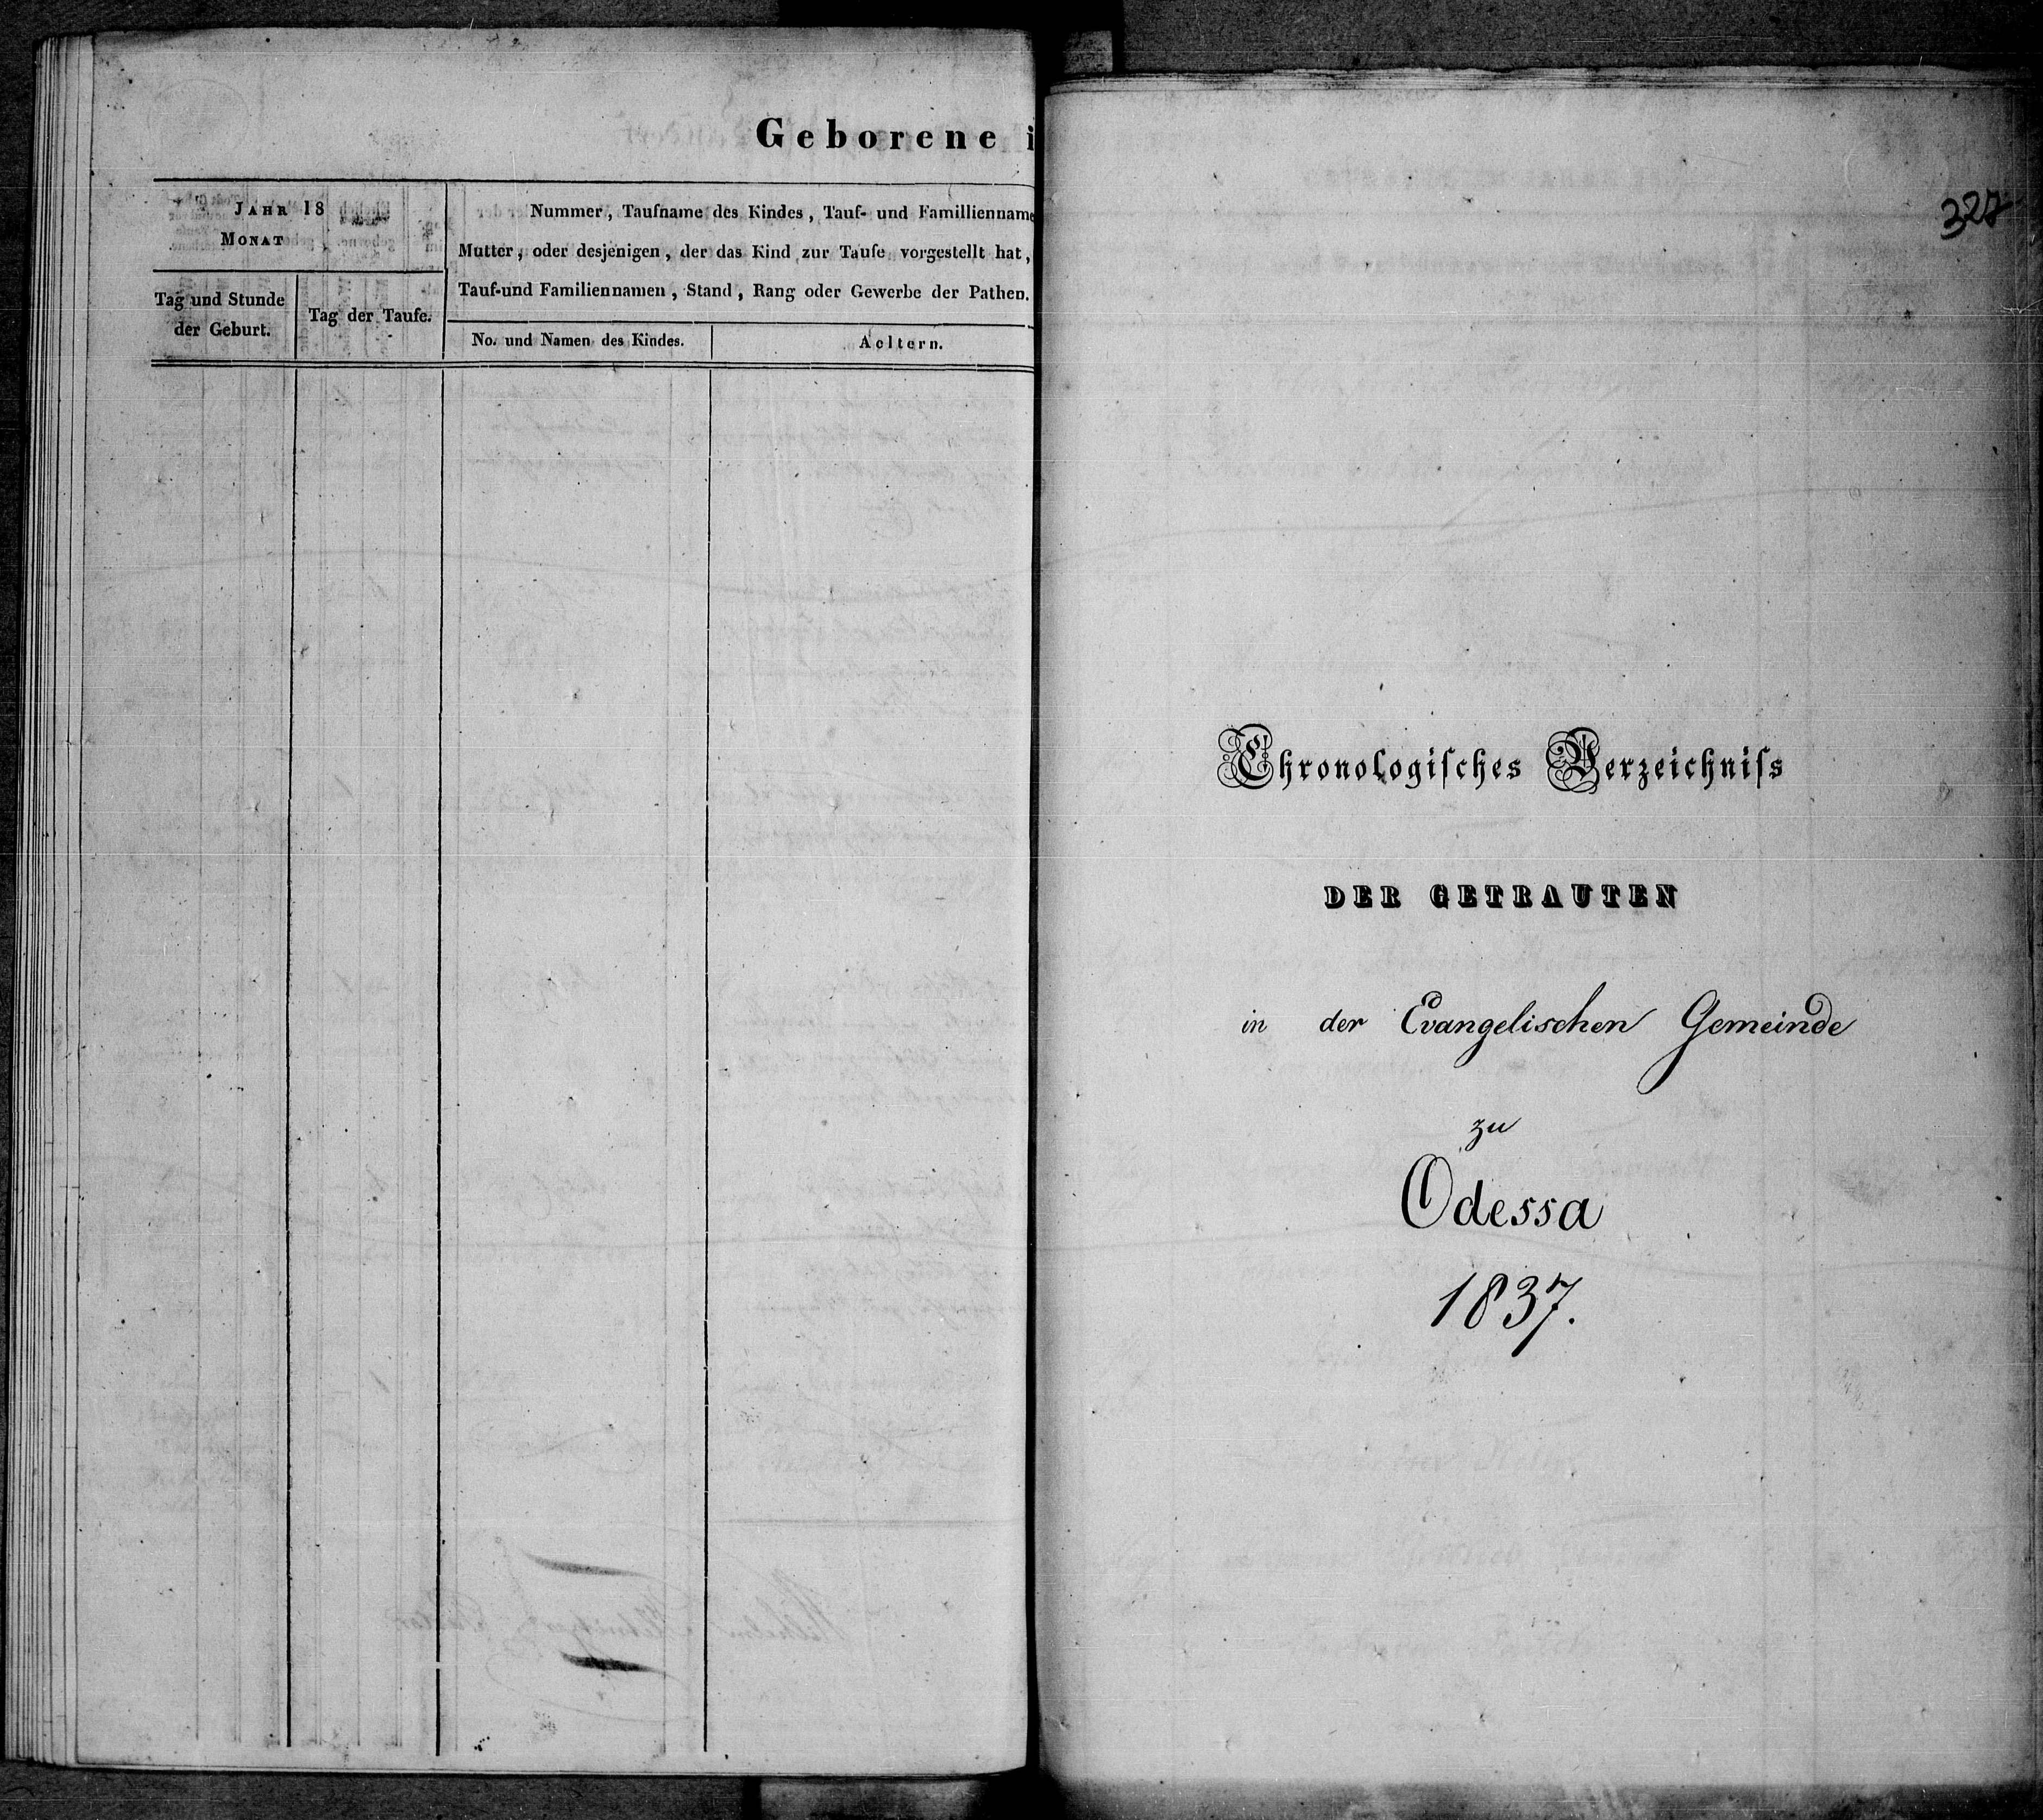 Geborene i
JAHR 18
MONAT
Tag und Stunde
der Geburt.
Tag der Taufe.
Nummer, Taufname des Kindes, Tauf- und Famillienname
Mutter, oder desjenigen, der das Kind zur Taufe vorgestellt hat,
Tauf-und Familiennamen, Stand, Rang oder Gewerbe der Pathen.
No. und Namen des Kindes.
Aeltern.
327
Chronologisches Verzeichniss
DER GETRAUTEN
in der Evangelischen Gemeinde
zu
Odessa
1837.